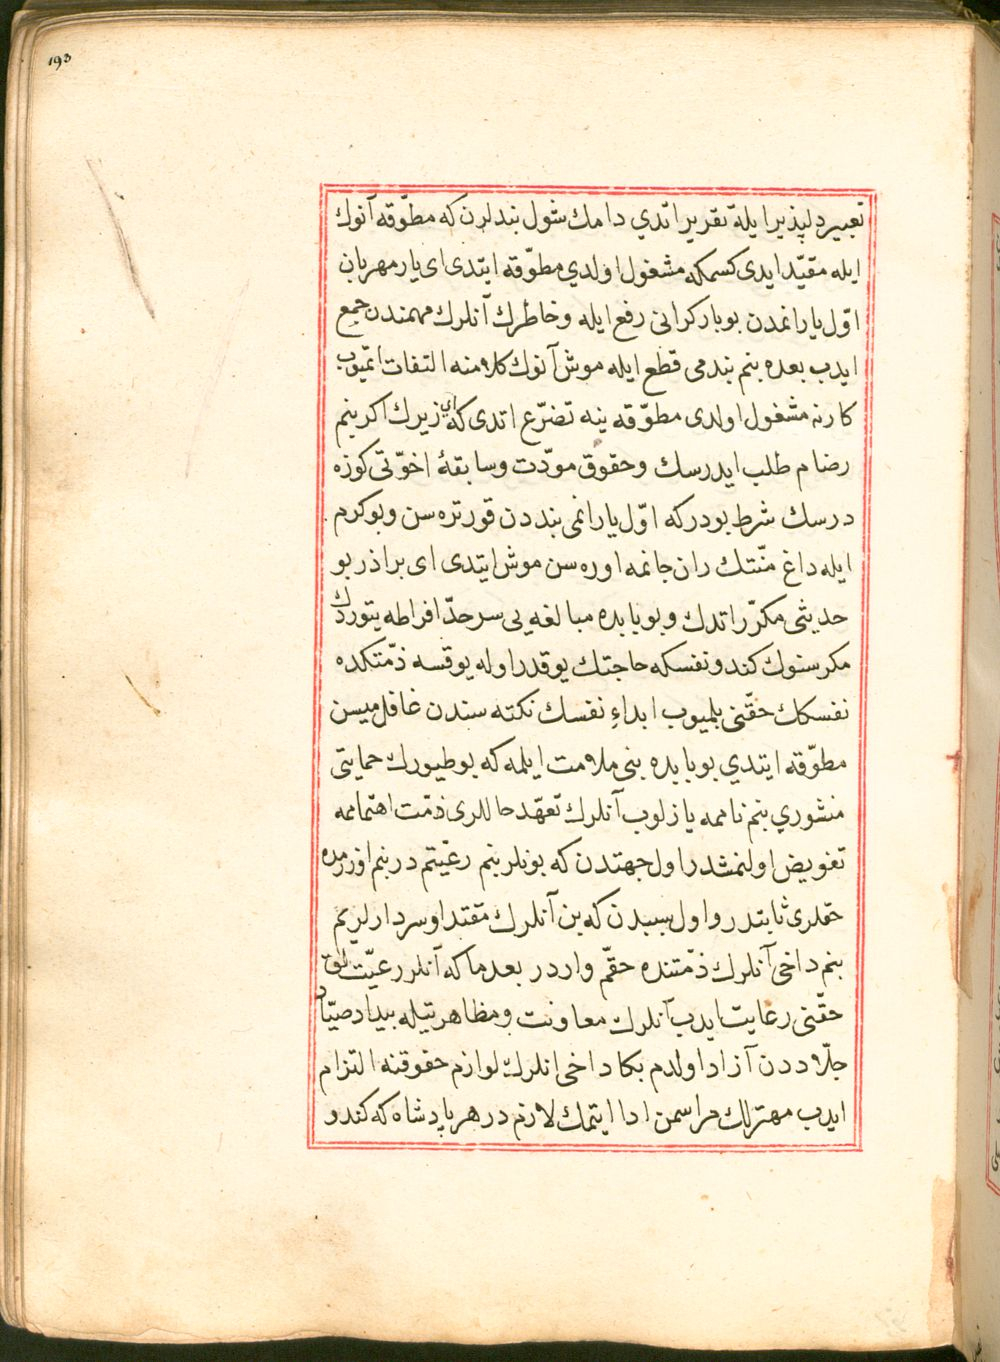 193
تعبیر دلپذیر ایله تقریر اتدي دامك شول بندلرن که مطوّقه آنوك
ایله مقیّد ایدی کسمکه مشغول اولدي مطوّقه ایتدی ای یار مهربان
اوّل یارانمدن بو بارکرانی رفع ایله و خاطرك آنلرك مهمندن جمع
ایدب بعده بنم بندمی قطع ایله موش آنوك کلامنه التفات اتمیوب
کارنه مشغول اولدی مطوّقه ینه تضرّع اتدی که ای زیرك اکر بنم
رضام طلب ایدرسك و حقوق مودّت و سابقهٔ اخوّتی کوزه
درسك شرط بودر که اوّل یارانمی بنددن قورتره سن و بو کرم
ایله داغ منّتك ران جانمه اوره سن موش ایتدی ای برادر بو
حدیثی مکرّر اتدك و بو بابده مبالغه یی سرحدّ افراطه یتوردك
مکر سنوك کندو نفسکه حاجتك یوقدر اوله یوقسه ذمّتکده
نفسکك حقّنی بلمیوب ابداءِ نفسك نکته سندن غافل میسن
مطوّقه ایتدي بو بابده بنی ملامت ایلمه که بو طیورك حمایتی
منشوري بنم ناممه یازلوب آنلرك تعهّد حاللری ذمّت اهتمامه
تفویض اولنمشدر اول جهتدن که بونلر بنم رعیّتم در بنم اوزرمده
حقلری ثابتدر و اول سببدن که بن آنلرك مقتدا و سردارلریم
بنم داخی آنلرك ذمّتنده حقّم واردر بعدما که آنلر رعیّت لق
حقّنی رعایت ایدب آنلرك معاونت و مظاهرتیله بیداد صیّاد
جلّاددن آزاد اولدم بکا داخی انلرك لوازم حقوقنه التزام
ایدب مهترلك مراسمن ادا ایتمك لازم در هر پادشاه که کندو